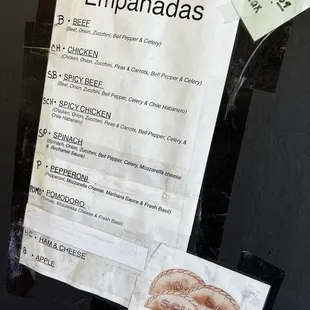 Empanadas
B • BEEF
(Beef, Onion, Zucchini, Bell Pepper & Celery)
CH • CHICKEN
(Chicken, Onion, Zucchini, Peas & Carrots, Bell Pepper & Celery)
SB • SPICY BEEF
(Beef, Onion, Zucchini, Bell Pepper, Celery & Chile Habanero)
SCH • SPICY CHICKEN
(Chicken, Onion, Zucchini, Peas & Carrots, Bell Pepper, Celery &
Chile Habanero)
SP • SPINACH
(Spinach, Onion, Zucchini, Bell Pepper, Celery, Mozzarella cheese
& Bechamel Sauce)
P • PEPPERONI
(Pepperoni, Mozzarella Cheese, Marinara Sauce & Fresh Basil)
POMO • POMODORO
(Tomato, Mozzarella Cheese & Fresh Basil)
HC • HAM & CHEESE
• APPLE